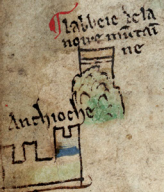 Labbeie de la
noire mũtai
ne
Anthioche